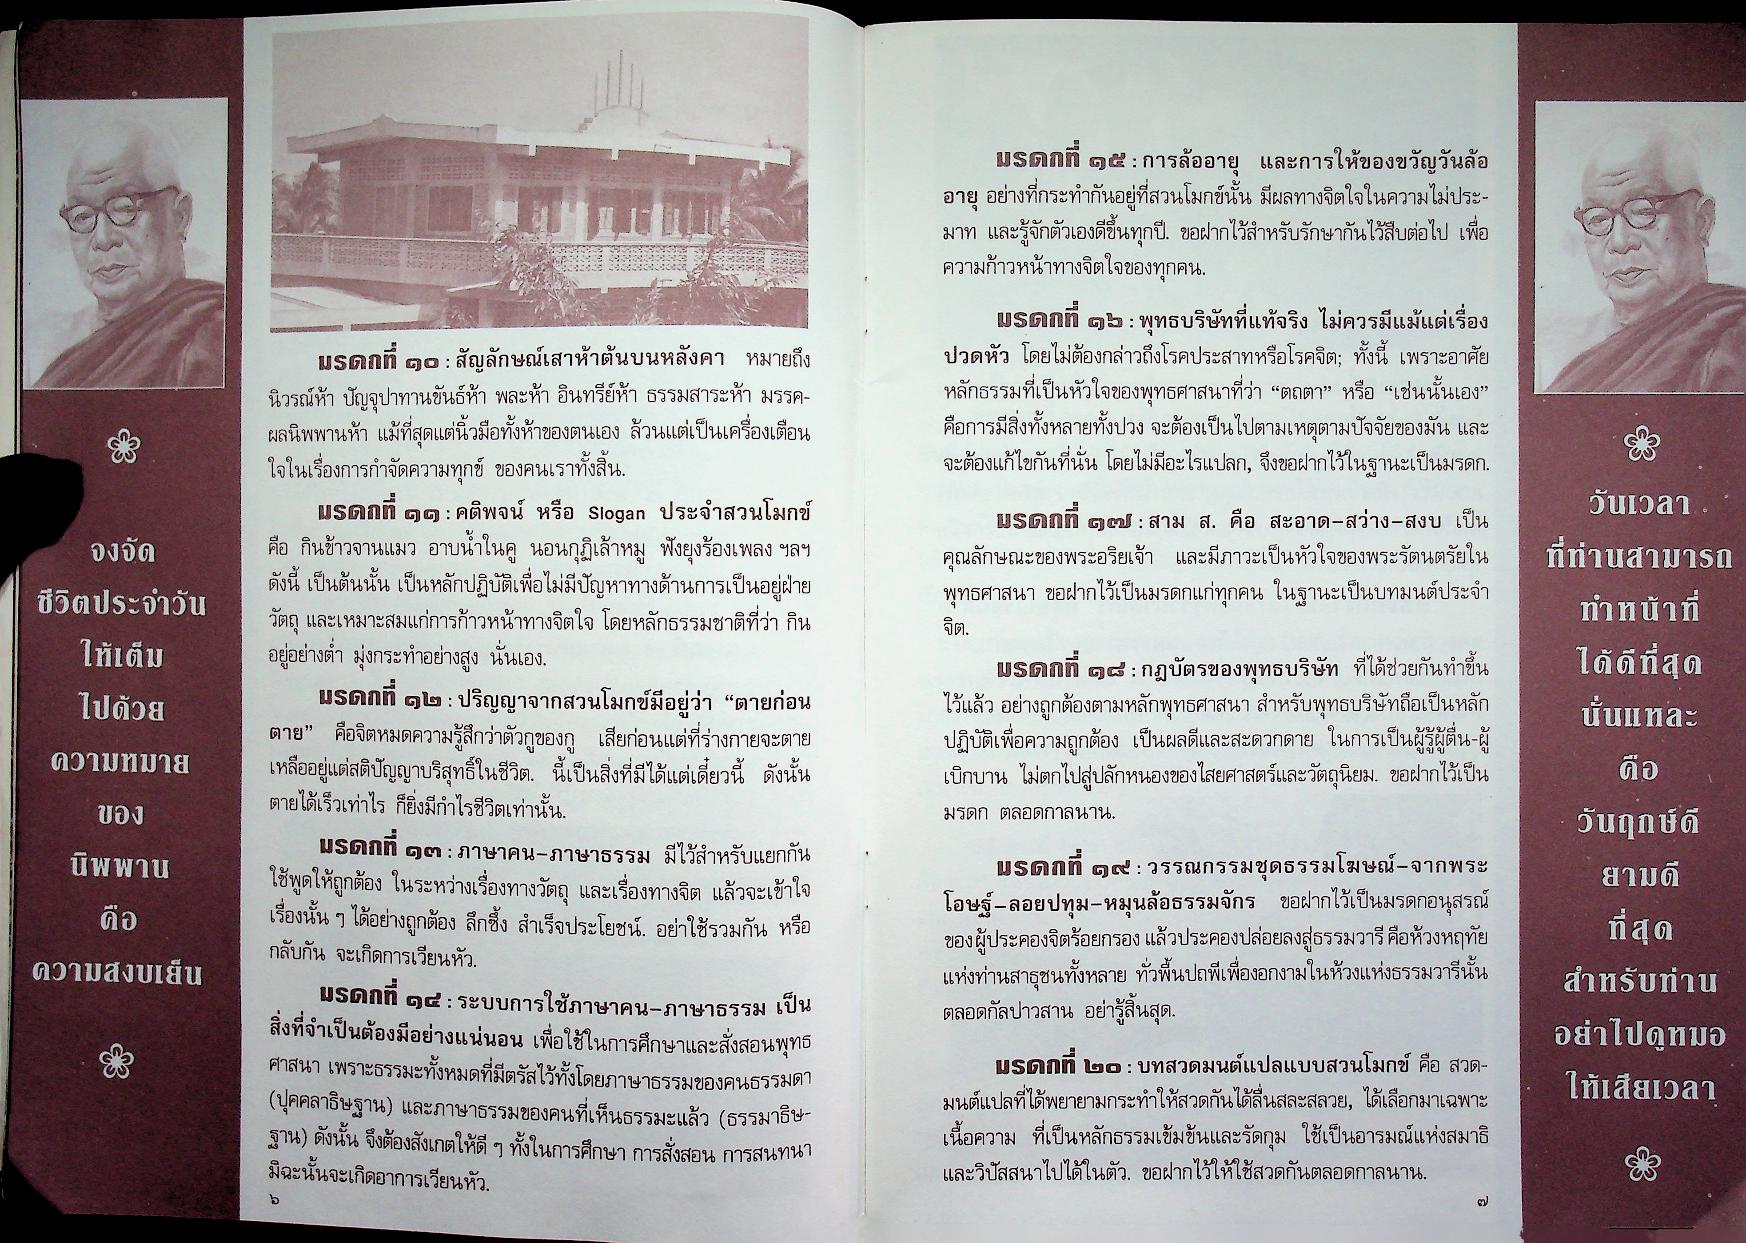 จงจัด
ชีวิตประจำวัน
ให้เต็ม
ไปด้วย
ความหมาย
ของ
นิพพาน
คือ
ความสงบเย็น
มรดกที่ ๑๐ : สัญลักษณ์เสาห้าต้นบนหลังคา หมายถึง
นิวรณ์ห้า ปัญจุปาทานขันธ์ห้า พละห้า อินทรีย์ห้า ธรรมสาระห้า มรรค-
ผลนิพพานห้า แม้ที่สุดแต่นิ้วมือทั้งห้าของตนเอง ล้วนแต่เป็นเครื่องเตือน
ใจในเรื่องการกำจัดความทุกข์ ของคนเราทั้งสิ้น.
มรดกที่ ๑๑ : คติพจน์ หรือ Slogan ประจำสวนโมกข์
คือ กินข้าวจานแมว อาบน้ำในคู นอนกุฏิเล้าหมู ฟังยุงร้องเพลง ฯลฯ
ดังนี้ เป็นต้นนั้น เป็นหลักปฏิบัติเพื่อไม่มีปัญหาทางด้านการเป็นอยู่ฝ่าย
วัตถุ และเหมาะสมแก่การก้าวหน้าทางจิตใจ โดยหลักธรรมชาติที่ว่า กิน
อยู่อย่างต่ำ มุ่งกระทำอย่างสูง นั่นเอง.
มรดกที่ ๑๒ : ปริญญาจากสวนโมกข์มีอยู่ว่า “ตายก่อน
ตาย” คือจิตหมดความรู้สึกว่าตัวกูของกู เสียก่อนแต่ที่ร่างกายจะตาย
เหลืออยู่แต่สติปัญญาบริสุทธิ์ในชีวิต. นี้เป็นสิ่งที่มีได้แต่เดี๋ยวนี้ ดังนั้น
ตายได้เร็วเท่าไร ก็ยิ่งมีกำไรชีวิตเท่านั้น.
มรดกที่ ๑๓ : ภาษาคน–ภาษาธรรม มีไว้สำหรับแยกกัน
ใช้พูดให้ถูกต้อง ในระหว่างเรื่องทางวัตถุ และเรื่องทางจิต แล้วจะเข้าใจ
เรื่องนั้น ๆ ได้อย่างถูกต้อง ลึกซึ้ง สำเร็จประโยชน์. อย่าใช้รวมกัน หรือ
กลับกัน จะเกิดการเวียนหัว.
มรดกที่ ๑๔ : ระบบการใช้ภาษาคน–ภาษาธรรม เป็น
สิ่งที่จำเป็นต้องมีอย่างแน่นอน เพื่อใช้ในการศึกษาและสั่งสอนพุทธ
ศาสนา เพราะธรรมะทั้งหมดที่มีตรัสไว้ทั้งโดยภาษาธรรมของคนธรรมดา
(ปุคคลาธิษฐาน) และภาษาธรรมของคนที่เห็นธรรมะแล้ว (ธรรมาธิษ-
ฐาน) ดังนั้น จึงต้องสังเกตให้ดี ๆ ทั้งในการศึกษา การสั่งสอน การสนทนา
มิฉะนั้นจะเกิดอาการเวียนหัว.
๖
มรดกที่ ๑๕ : การล้ออายุ และการให้ของขวัญวันล้อ
อายุ อย่างที่กระทำกันอยู่ที่สวนโมกข์นั้น มีผลทางจิตใจในความไม่ประ-
มาท และรู้จักตัวเองดีขึ้นทุกปี. ขอฝากไว้สำหรับรักษากันไว้สืบต่อไป เพื่อ
ความก้าวหน้าทางจิตใจของทุกคน.
มรดกที่ ๑๖ : พุทธบริษัทที่แท้จริง ไม่ควรมีแม้แต่เรื่อง
ปวดหัว โดยไม่ต้องกล่าวถึงโรคประสาทหรือโรคจิต; ทั้งนี้ เพราะอาศัย
หลักธรรมที่เป็นหัวใจของพุทธศาสนาที่ว่า “ตถตา” หรือ “เช่นนั้นเอง”
คือการมีสิ่งทั้งหลายทั้งปวง จะต้องเป็นไปตามเหตุตามปัจจัยของมัน และ
จะต้องแก้ไขกันที่นั่น โดยไม่มีอะไรแปลก, จึงขอฝากไว้ในฐานะเป็นมรดก.
มรดกที่ ๑๗ : สาม ส. คือ สะอาด–สว่าง–สงบ เป็น
คุณลักษณะของพระอริยเจ้า และมีภาวะเป็นหัวใจของพระรัตนตรัยใน
พุทธศาสนา ขอฝากไว้เป็นมรดกแก่ทุกคน ในฐานะเป็นบทมนต์ประจำ
จิต.
มรดกที่ ๑๘ : กฎบัตรของพุทธบริษัท ที่ได้ช่วยกันทำขึ้น
ไว้แล้ว อย่างถูกต้องตามหลักพุทธศาสนา สำหรับพุทธบริษัทถือเป็นหลัก
ปฏิบัติเพื่อความถูกต้อง เป็นผลดีและสะดวกดาย ในการเป็นผู้รู้ผู้ตื่น-ผู้
เบิกบาน ไม่ตกไปสู่ปลักหนองของไสยศาสตร์และวัตถุนิยม. ขอฝากไว้เป็น
มรดก ตลอดกาลนาน.
มรดกที่ ๑๙ : วรรณกรรมชุดธรรมโฆษณ์–จากพระ
โอษฐ์–ลอยปทุม–หมุนล้อธรรมจักร ขอฝากไว้เป็นมรดกอนุสรณ์
ของผู้ประคองจิตร้อยกรอง แล้วประคองปล่อยลงสู่ธรรมวารี คือห้วงหฤทัย
แห่งท่านสาธุชนทั้งหลาย ทั่วพื้นปถพีเพื่องอกงามในห้วงแห่งธรรมวารีนั้น
ตลอดกัลปาวสาน อย่ารู้สิ้นสุด.
มรดกที่ ๒๐ : บทสวดมนต์แปลแบบสวนโมกข์ คือ สวด-
มนต์แปลที่ได้พยายามกระทำให้สวดกันได้ลื่นสละสลวย, ได้เลือกมาเฉพาะ
เนื้อความ ที่เป็นหลักธรรมเข้มข้นและรัดกุม ใช้เป็นอารมณ์แห่งสมาธิ
และวิปัสสนาไปได้ในตัว. ขอฝากไว้ให้ใช้สวดกันตลอดกาลนาน.
๗
วันเวลา
ที่ท่านสามารถ
ทำหน้าที่
ได้ดีที่สุด
นั่นแหละ
คือ
วันฤกษ์ดี
ยามดี
ที่สุด
สำหรับท่าน
อย่าไปดูหมอ
ให้เสียเวลา